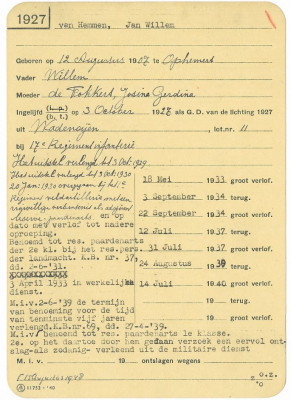 1927
van Hemmen, Jan Willem
Geboren op 12 Augustus 1907 te Ophemert
Vader Willem
Moeder de Fokkert, Josina Gerdina
Ingelijfd (l.p.) op 3 October 1927 als G. D. van de lichting 1927
(b. t.)
uit Wadenoyen, lot nr. 11
bij 17e Regiment infanterie
Herhuistel verlengd tot 3 Oct. 1929
Has uitstel verlengd tot 3 Oct. 1930
20 Jan: 1930 overgegaan bij het
Regiment veldartillerie met een
vrijwillige verbintenis als
reserve-paardenarts en op
dato met verlof tot nadere
oproeping.
Benoemd tot res. paardenarts
der 2e kl. bij het res.pers.
der landmacht. K.B. nr. 37,
dd. 2-6-'31.
3 April 1933 in werkelijke
dienst.
18 Mei 1933 groot verlof.
3 September 1934 tr. verlof.
22 September 1934 groot verlof.
12 Juli 1937 tr. verlof.
31 Juli 1937 groot verlof.
24 Augustus 19 tr. verlof.
14 Juli 1940 groot verlof.
19 tr. verlof.
19 groot verlof.
N.i.v. 2-6-'39 de termijn
van benoeming voor de tijd
van tenminste vijf jaren
verlengd.K.B.nr.69, dd. 27-4-'39.
M.i.v. benoemd tot res. paardenarts 1e klasse.
2e. op het daartoe door hem gedaan verzoek een eervol ont-
slag-als zodanig- verleend uit de militaire dienst
M. i. v. 19 ontslagen wegens
1 Augustus 1948
z.o.z.
11752 - '40